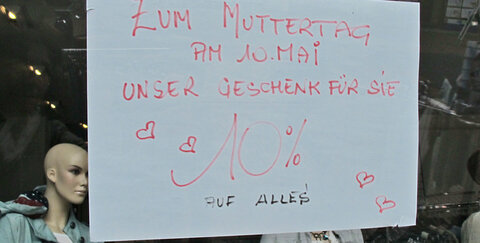 ZUM MUTTERTAG
AM 10.MAI
UNSER GESCHENK FÜR SIE
10%
AUF ALLES